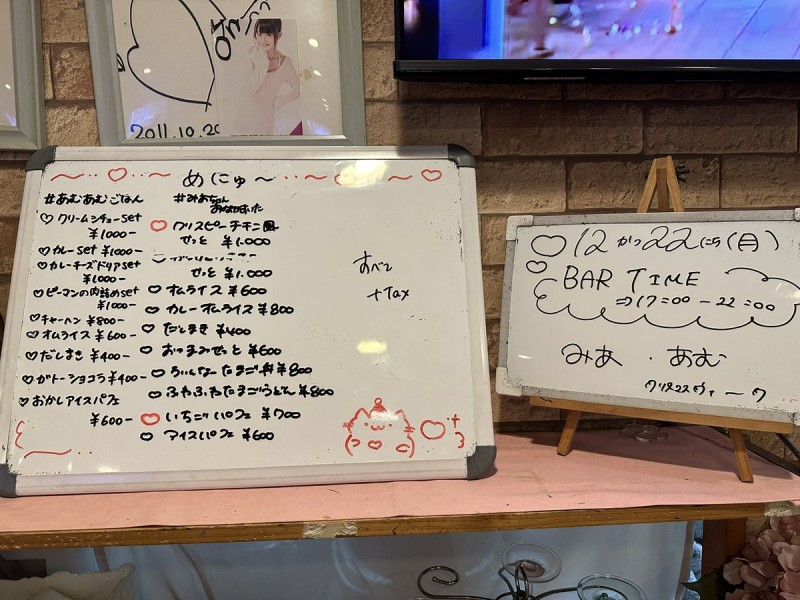 2011.10.20
めにゅ〜
#あむあむごはん
♡クリームシチューset
¥1000-
♡カレーset ¥1000-
♡カレーチーズドリアset
¥1000-
♡ピーマンの肉詰めset
¥1000-
♡チャーハン ¥800-
♡オムライス ¥600-
♡だしまき ¥400-
♡ガトーショコラ ¥400-
♡おかしアイスパフェ
¥600-
#みあちゃん
♡クリスピーチキン風
せっと ¥1.000
せっと ¥1.000
♡オムライス ¥600
♡カレーオムライス ¥800
♡だしまき ¥400
♡おつまみせっと ¥600
たまご丼 ¥800
♡ふわふわたまごうどん ¥800
♡いちごパフェ ¥700
♡アイスパフェ ¥600
すべて
+Tax
♡12がつ22にち(月)
♡BAR TIME
⇒17:00-22:00
みあ・あむ
クリスマスウィーク